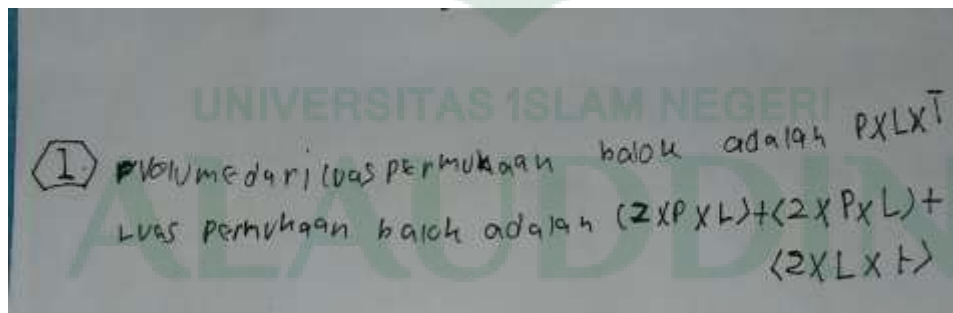 UNIVERSITAS ISLAM NEGERI
ALAUDDIN
1 Volume dari luas permukaan balok adalah PXLXT
Luas permukaan balok adalah (2XPXL)+(2XPXL)+
(2XLXt)